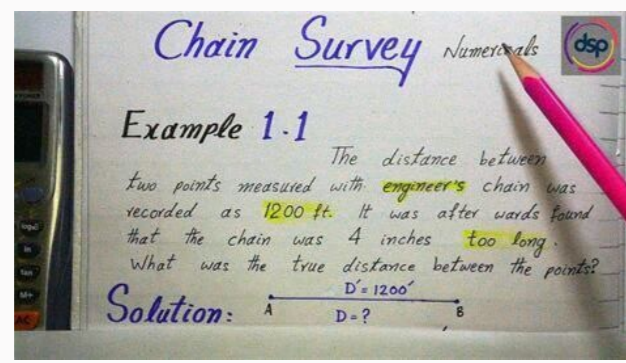 Chain Survey Numericals
dsp
Example 1.1
The distance between
two points measured with engineer's chain was
recorded as 1200 ft. It was after wards found
that the chain was 4 inches too long.
What was the true distance between the points?
D' = 1200'
Solution: A B
D = ?
log
ln
tan
M+
AC